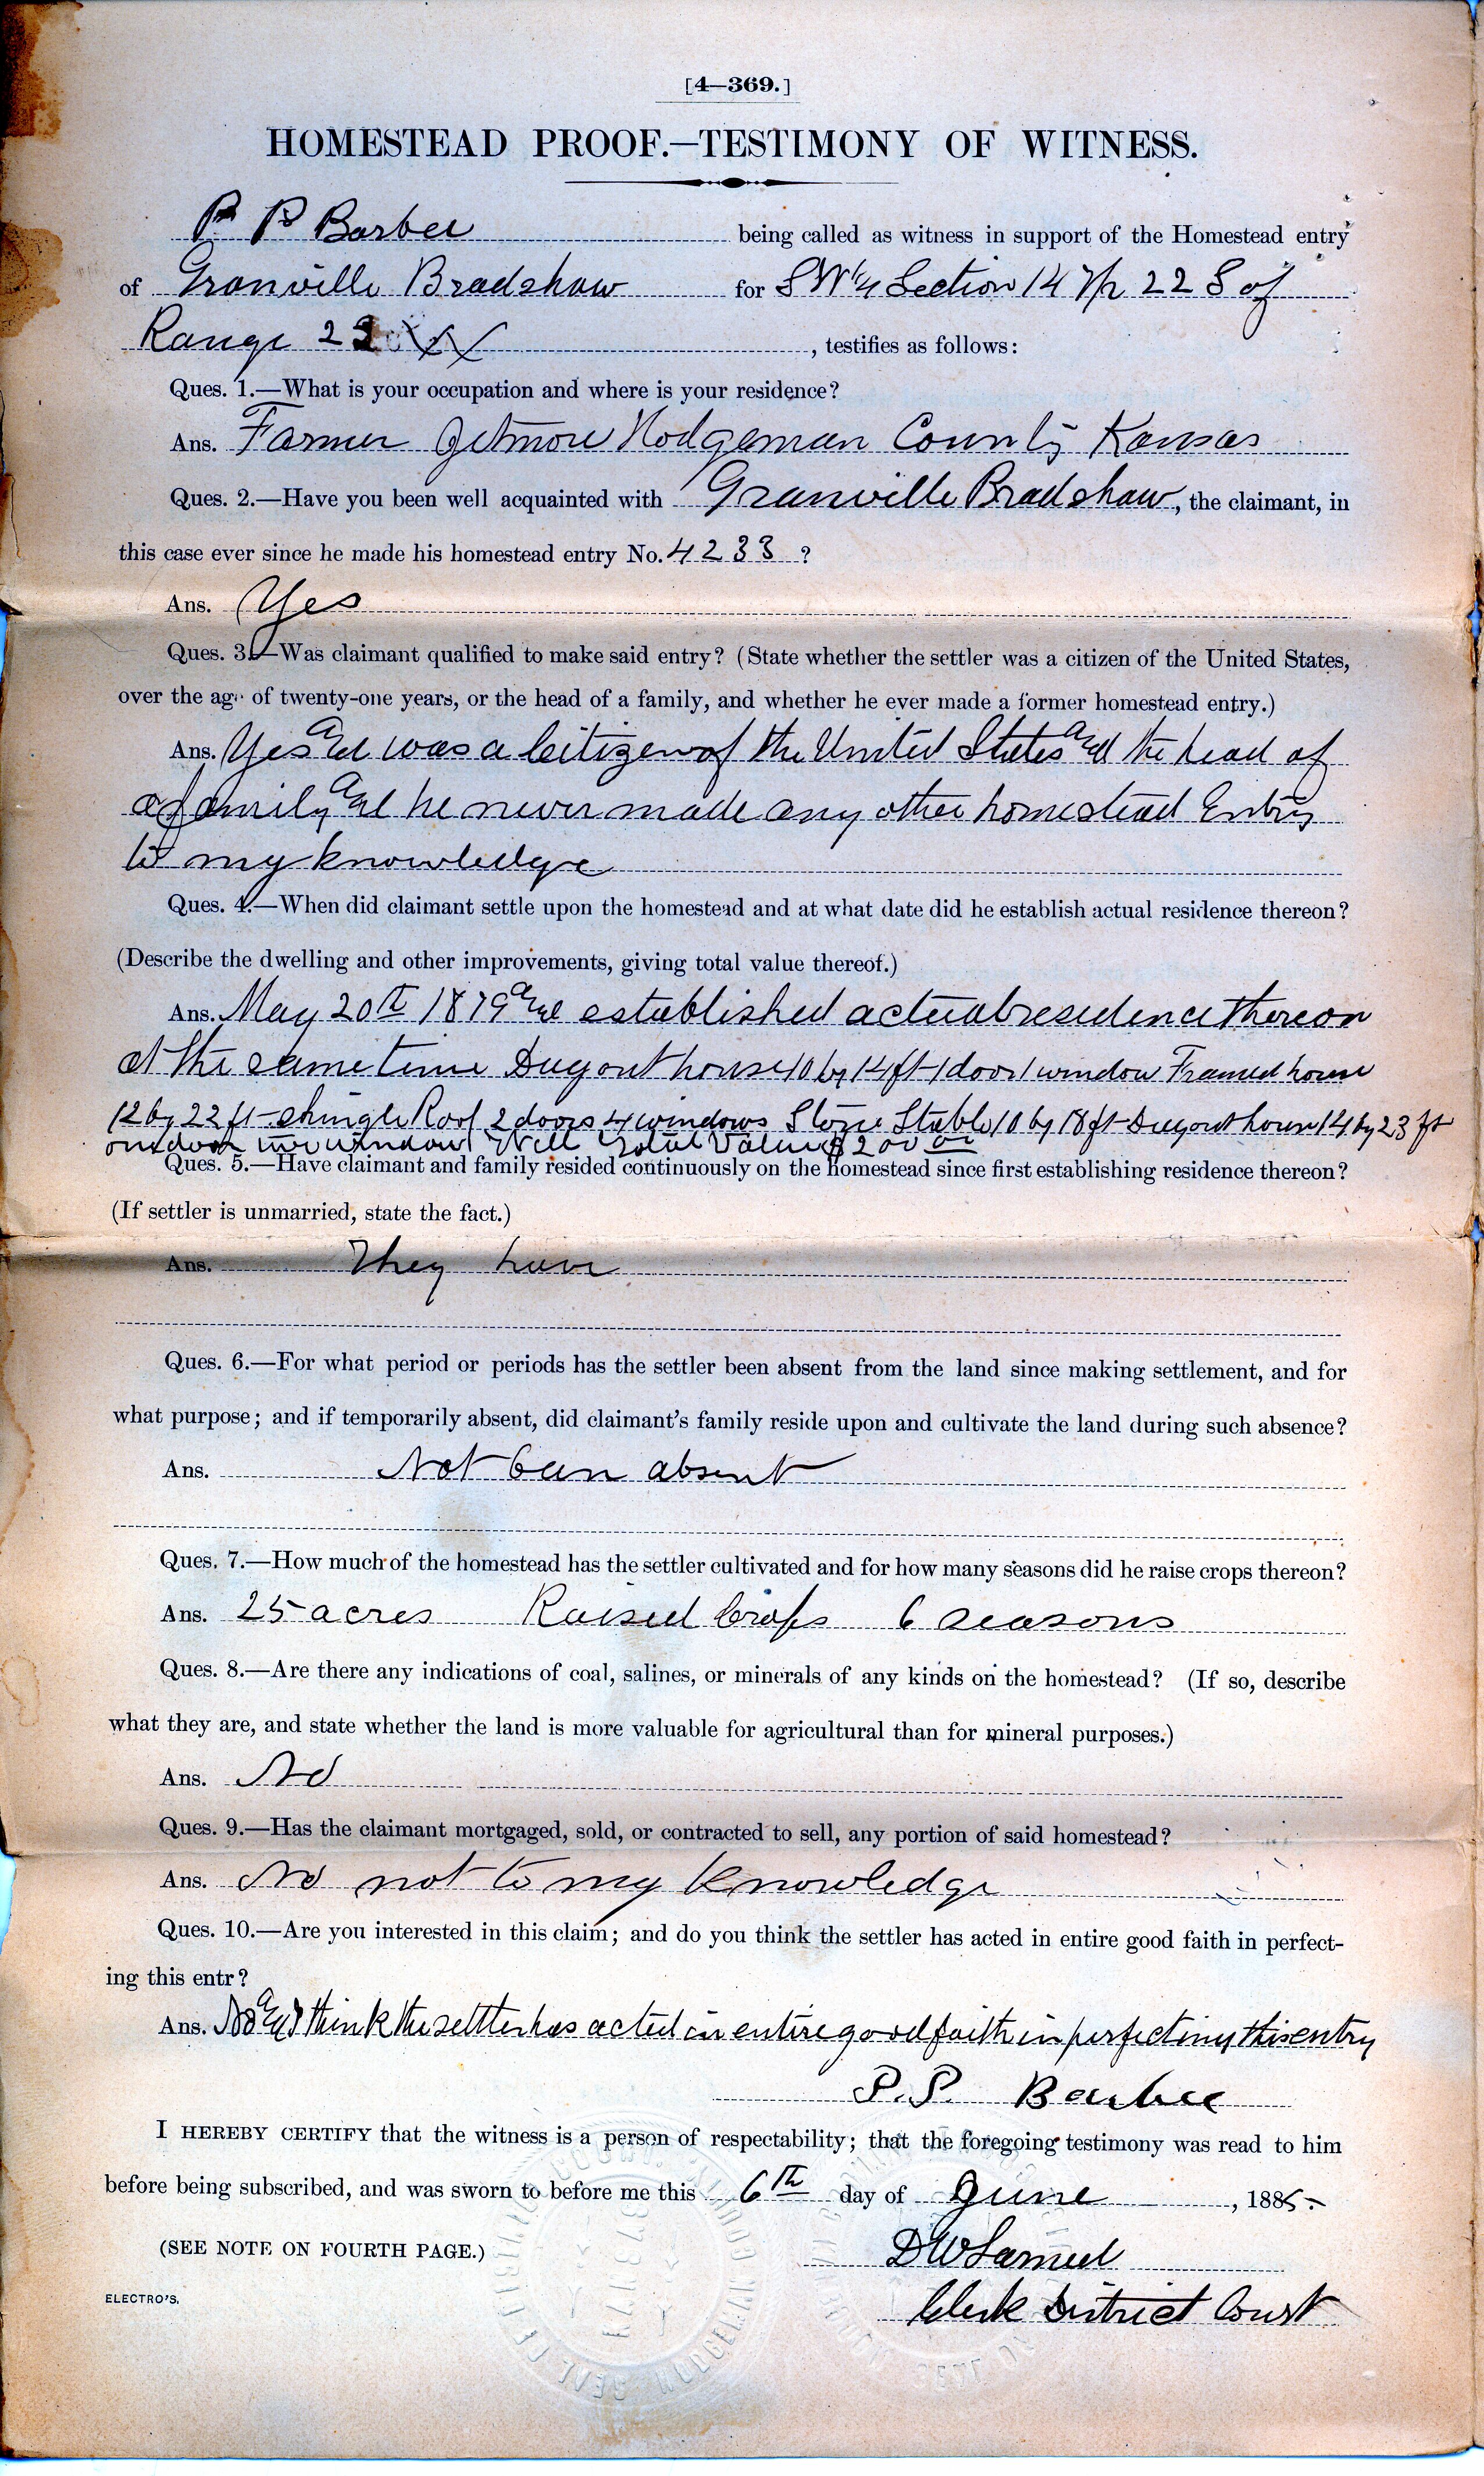 [4—369.]
HOMESTEAD PROOF.—TESTIMONY OF WITNESS.
P P Barbee being called as witness in support of the Homestead entry
of Granville Bradshaw for SW 1/4 Section 14 Tp 22 S of
Range 22 , testifies as follows:
Ques. 1.—What is your occupation and where is your residence?
Ans. Farmer Jetmore Hodgeman County Kansas
Ques. 2.—Have you been well acquainted with Granville Bradshaw, the claimant, in
this case ever since he made his homestead entry No. 4233 ?
Ans. Yes
Ques. 3.—Was claimant qualified to make said entry? (State whether the settler was a citizen of the United States,
over the age of twenty-one years, or the head of a family, and whether he ever made a former homestead entry.)
Ans. Yes and was a Citizen of the United States and the head of
a family and he never made any other homestead Entry
to my knowledge
Ques. 4.—When did claimant settle upon the homestead and at what date did he establish actual residence thereon?
(Describe the dwelling and other improvements, giving total value thereof.)
Ans. May 20th 1879 and established actual residence thereon
at the same time Dugout house 10 by 14 ft 1 door 1 window Framed house
12 by 22 ft shingle Roof 2 doors 4 windows Stone Stable 10 by 18 ft Dugout house 14 by 23 ft
one door window Well Total Value $200 00
Ques. 5.—Have claimant and family resided continuously on the homestead since first establishing residence thereon?
(If settler is unmarried, state the fact.)
Ans. They have
Ques. 6.—For what period or periods has the settler been absent from the land since making settlement, and for
what purpose; and if temporarily absent, did claimant's family reside upon and cultivate the land during such absence?
Ans. Not been absent
Ques. 7.—How much of the homestead has the settler cultivated and for how many seasons did he raise crops thereon?
Ans. 25 acres Raised Crops 6 seasons
Ques. 8.—Are there any indications of coal, salines, or minerals of any kinds on the homestead? (If so, describe
what they are, and state whether the land is more valuable for agricultural than for mineral purposes.)
Ans. No
Ques. 9.—Has the claimant mortgaged, sold, or contracted to sell, any portion of said homestead?
Ans. No not to my knowledge
Ques. 10.—Are you interested in this claim; and do you think the settler has acted in entire good faith in perfect-
ing this entr?
Ans. No and I think the settler has acted in entire good faith in perfecting this entry
P. P. Barbee
I HEREBY CERTIFY that the witness is a person of respectability; that the foregoing testimony was read to him
before being subscribed, and was sworn to before me this 6th day of June, 1885.
(SEE NOTE ON FOURTH PAGE.) D W Lamed
ELECTRO'S.
Clerk District Court